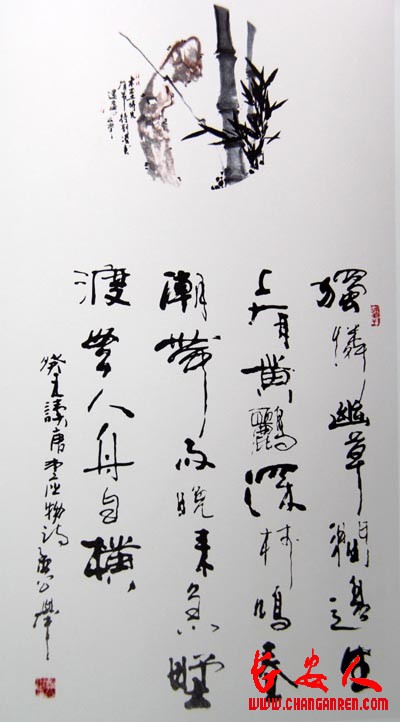 獨憐幽草澗邊生
上有黃鸝深树鳴春
潮帶雨晚來急野
渡無人舟自橫
癸未讀唐韋應物詩
长安人
WWW.CHANGANREN.COM